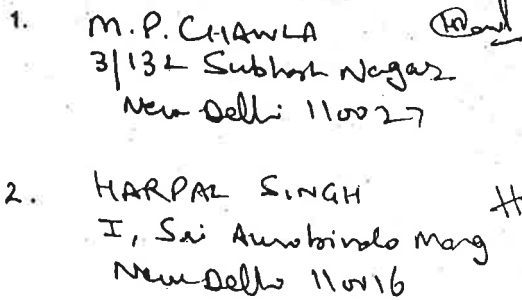 1. M.P. CHAWLA
3/132 Subhash Nagar
New Delhi 110027
2. HARPAL SINGH
I, Sri Aurobindo Marg
New Delhi 110016